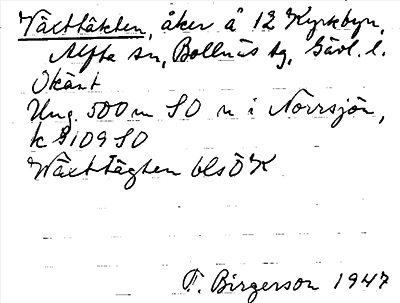 Växttäkten, åker å 12 Kyrkbyn,
Alfta sn, Bollnäs tg, Gävl. l.
Okänt
Ung. 500 m SO n i Norrsjön,
k 8109 SO
Växttägten blsÖK
F. Birgerson 1947